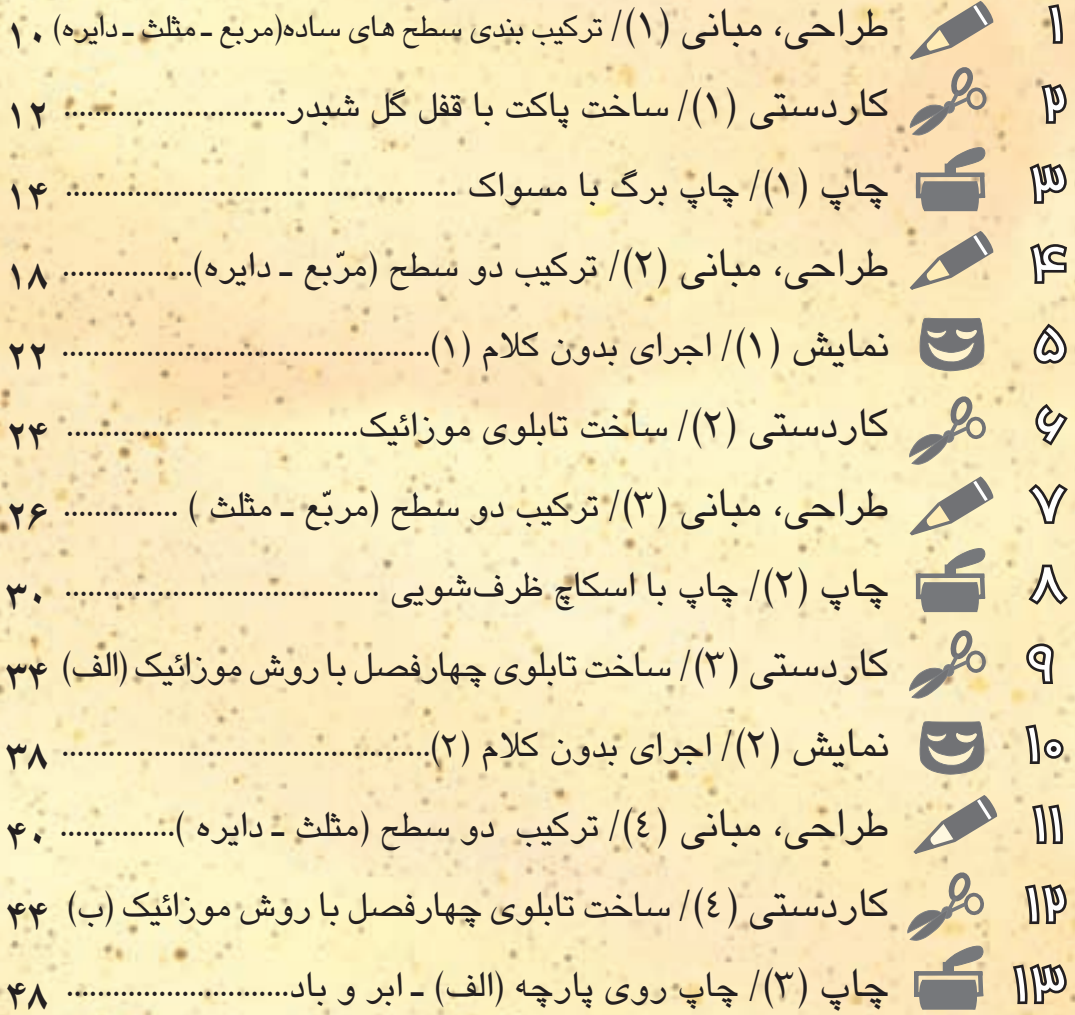 ۱ طراحی، مبانی (۱)/ ترکیب بندی سطح های ساده(مربع ـ مثلث ـ دایره) ۱۰
۲ کاردستی (۱)/ ساخت پاکت با قفل گل شبدر............................ ۱۲
۳ چاپ (۱)/ چاپ برگ با مسواک ................................................ ۱۴
۴ طراحی، مبانی (۲)/ ترکیب دو سطح (مربّع ـ دایره)................ ۱۸
۵ نمایش (۱)/ اجرای بدون کلام (۱)............................................. ۲۲
۶ کاردستی (۲)/ ساخت تابلوی موزائیک.................................... ۲۴
۷ طراحی، مبانی (۳)/ ترکیب دو سطح (مربّع ـ مثلث ) .............. ۲۶
۸ چاپ (۲)/ چاپ با اسکاچ ظرف‌شویی ...................................... ۳۰
۹ کاردستی (۳)/ ساخت تابلوی چهارفصل با روش موزائیک (الف) ۳۴
۱۰ نمایش (۲)/ اجرای بدون کلام (۲)............................................. ۳۸
۱۱ طراحی، مبانی (٤)/ ترکیب دو سطح (مثلث ـ دایره )............... ۴۰
۱۲ کاردستی (٤)/ ساخت تابلوی چهارفصل با روش موزائیک (ب) ۴۴
۱۳ چاپ (۳)/ چاپ روی پارچه (الف) ـ ابر و باد........................... ۴۸